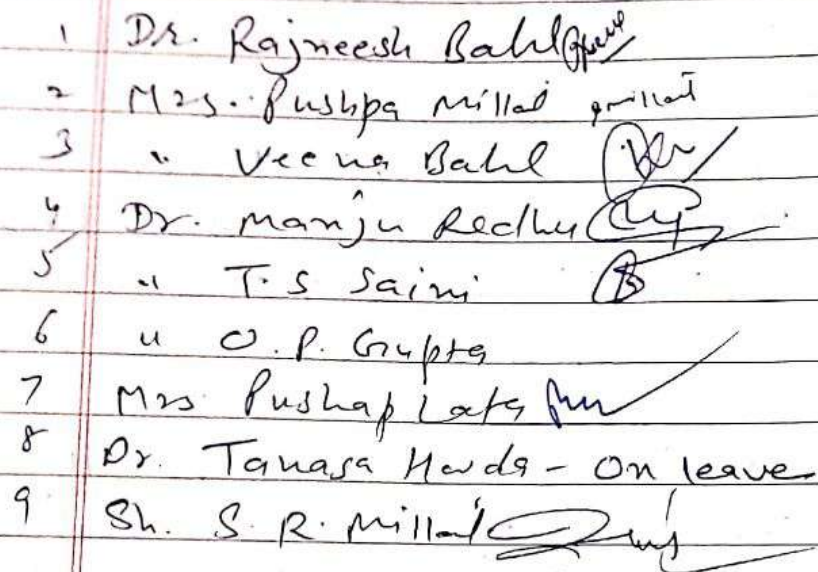 1 Dr. Rajneesh Bahl
2 Mrs. Pushpa Millat
3 " Veena Bahl
4 Dr. Manju Redhu
5 " T.S Saini
6 " O.P. Gupta
7 Mrs Pushap Lata
8 Dr. Tanasa Hooda - On leave
9 Sh. S. R. Millat